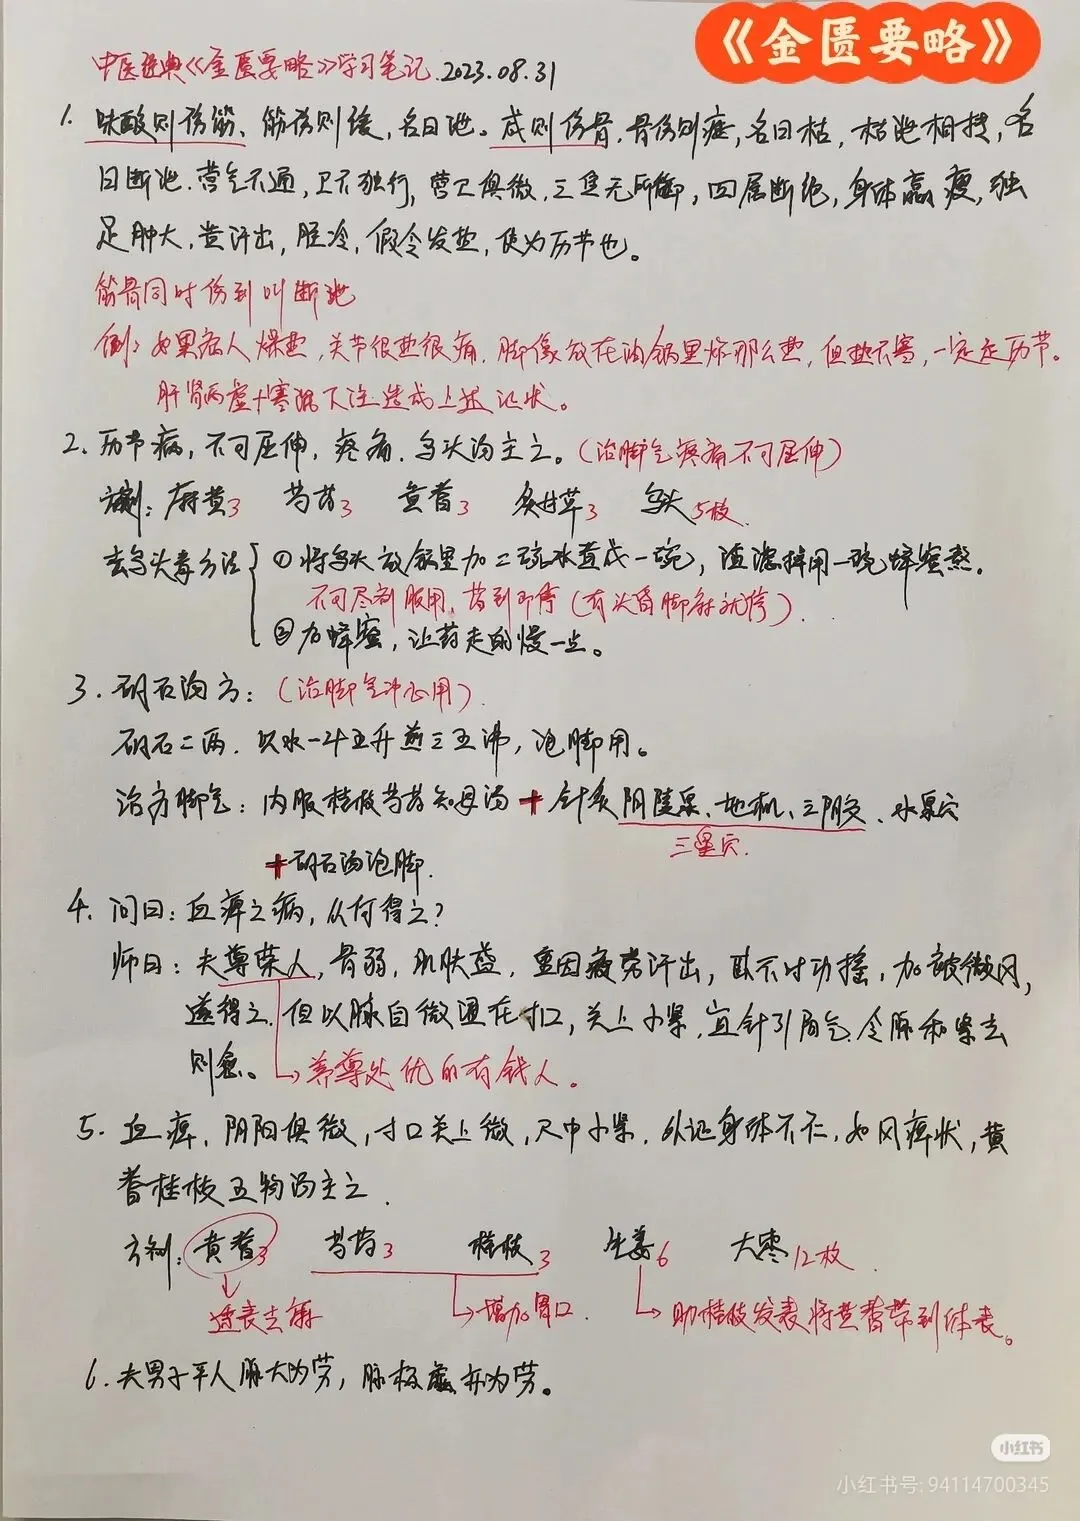 《金匮要略》
中医经典《金匮要略》学习笔记.2023.08.31
1. 味酸则伤筋、筋伤则缓,名曰泄。咸则伤骨,骨伤则痿,名曰枯,枯泄相搏,名
曰断泄.营气不通,卫不独行,营卫俱微,三焦无所御,四属断绝,身体羸瘦,独
足肿大,黄汗出,胫冷,假令发热,便为历节也。
筋骨同时伤到叫断泄
例:如果病人燥热,关节很热很痛.脚像放在油锅里炸那么热,但热不害,一定是历节。
肝肾两虚+寒湿下注造成上述症状。
2. 历节病,不可屈伸,疼痛.乌头汤主之。(治脚气疼痛不可屈伸)
方剂:麻黄3 芍药3 黄耆3 炙甘草3 乌头5枚
去乌头毒方法 ①将乌头放锅里加二碗水煮成一碗,渣滤掉用一碗蜂蜜熬.
不可尽剂服用,药到即停(有头昏脚麻就停).
②加蜂蜜,让药走的慢一点。
3. 矾石汤方:(治脚气冲心用)
矾石二两.以水一斗五升煎三五沸,泡脚用。
治疗脚气:内服桂枝芍药知母汤+针灸阴陵泉、地机、三阴交、水泉穴
三皇穴.
+矾石汤泡脚.
4. 问曰:血痹之病,从何得之?
师曰:夫尊荣人,骨弱,肌肤盛.重因疲劳汗出,卧不时动摇,加被微风,
遂得之.但以脉自微涩在寸口,关上小紧,宜针引阳气.令脉和紧去
则愈。
养尊处优的有钱人.
5. 血痹,阴阳俱微,寸口关上微,尺中小紧.外证身体不仁,如风痹状,黄
耆桂枝五物汤主之.
方剂:黄耆3 芍药3 桂枝3 生姜6 大枣12枚.
透表去麻 增加胃口. 助桂枝发表将黄耆带到体表。
6. 夫男子平人脉大为劳,脉极虚亦为劳。
小红书
小红书号:94114700345